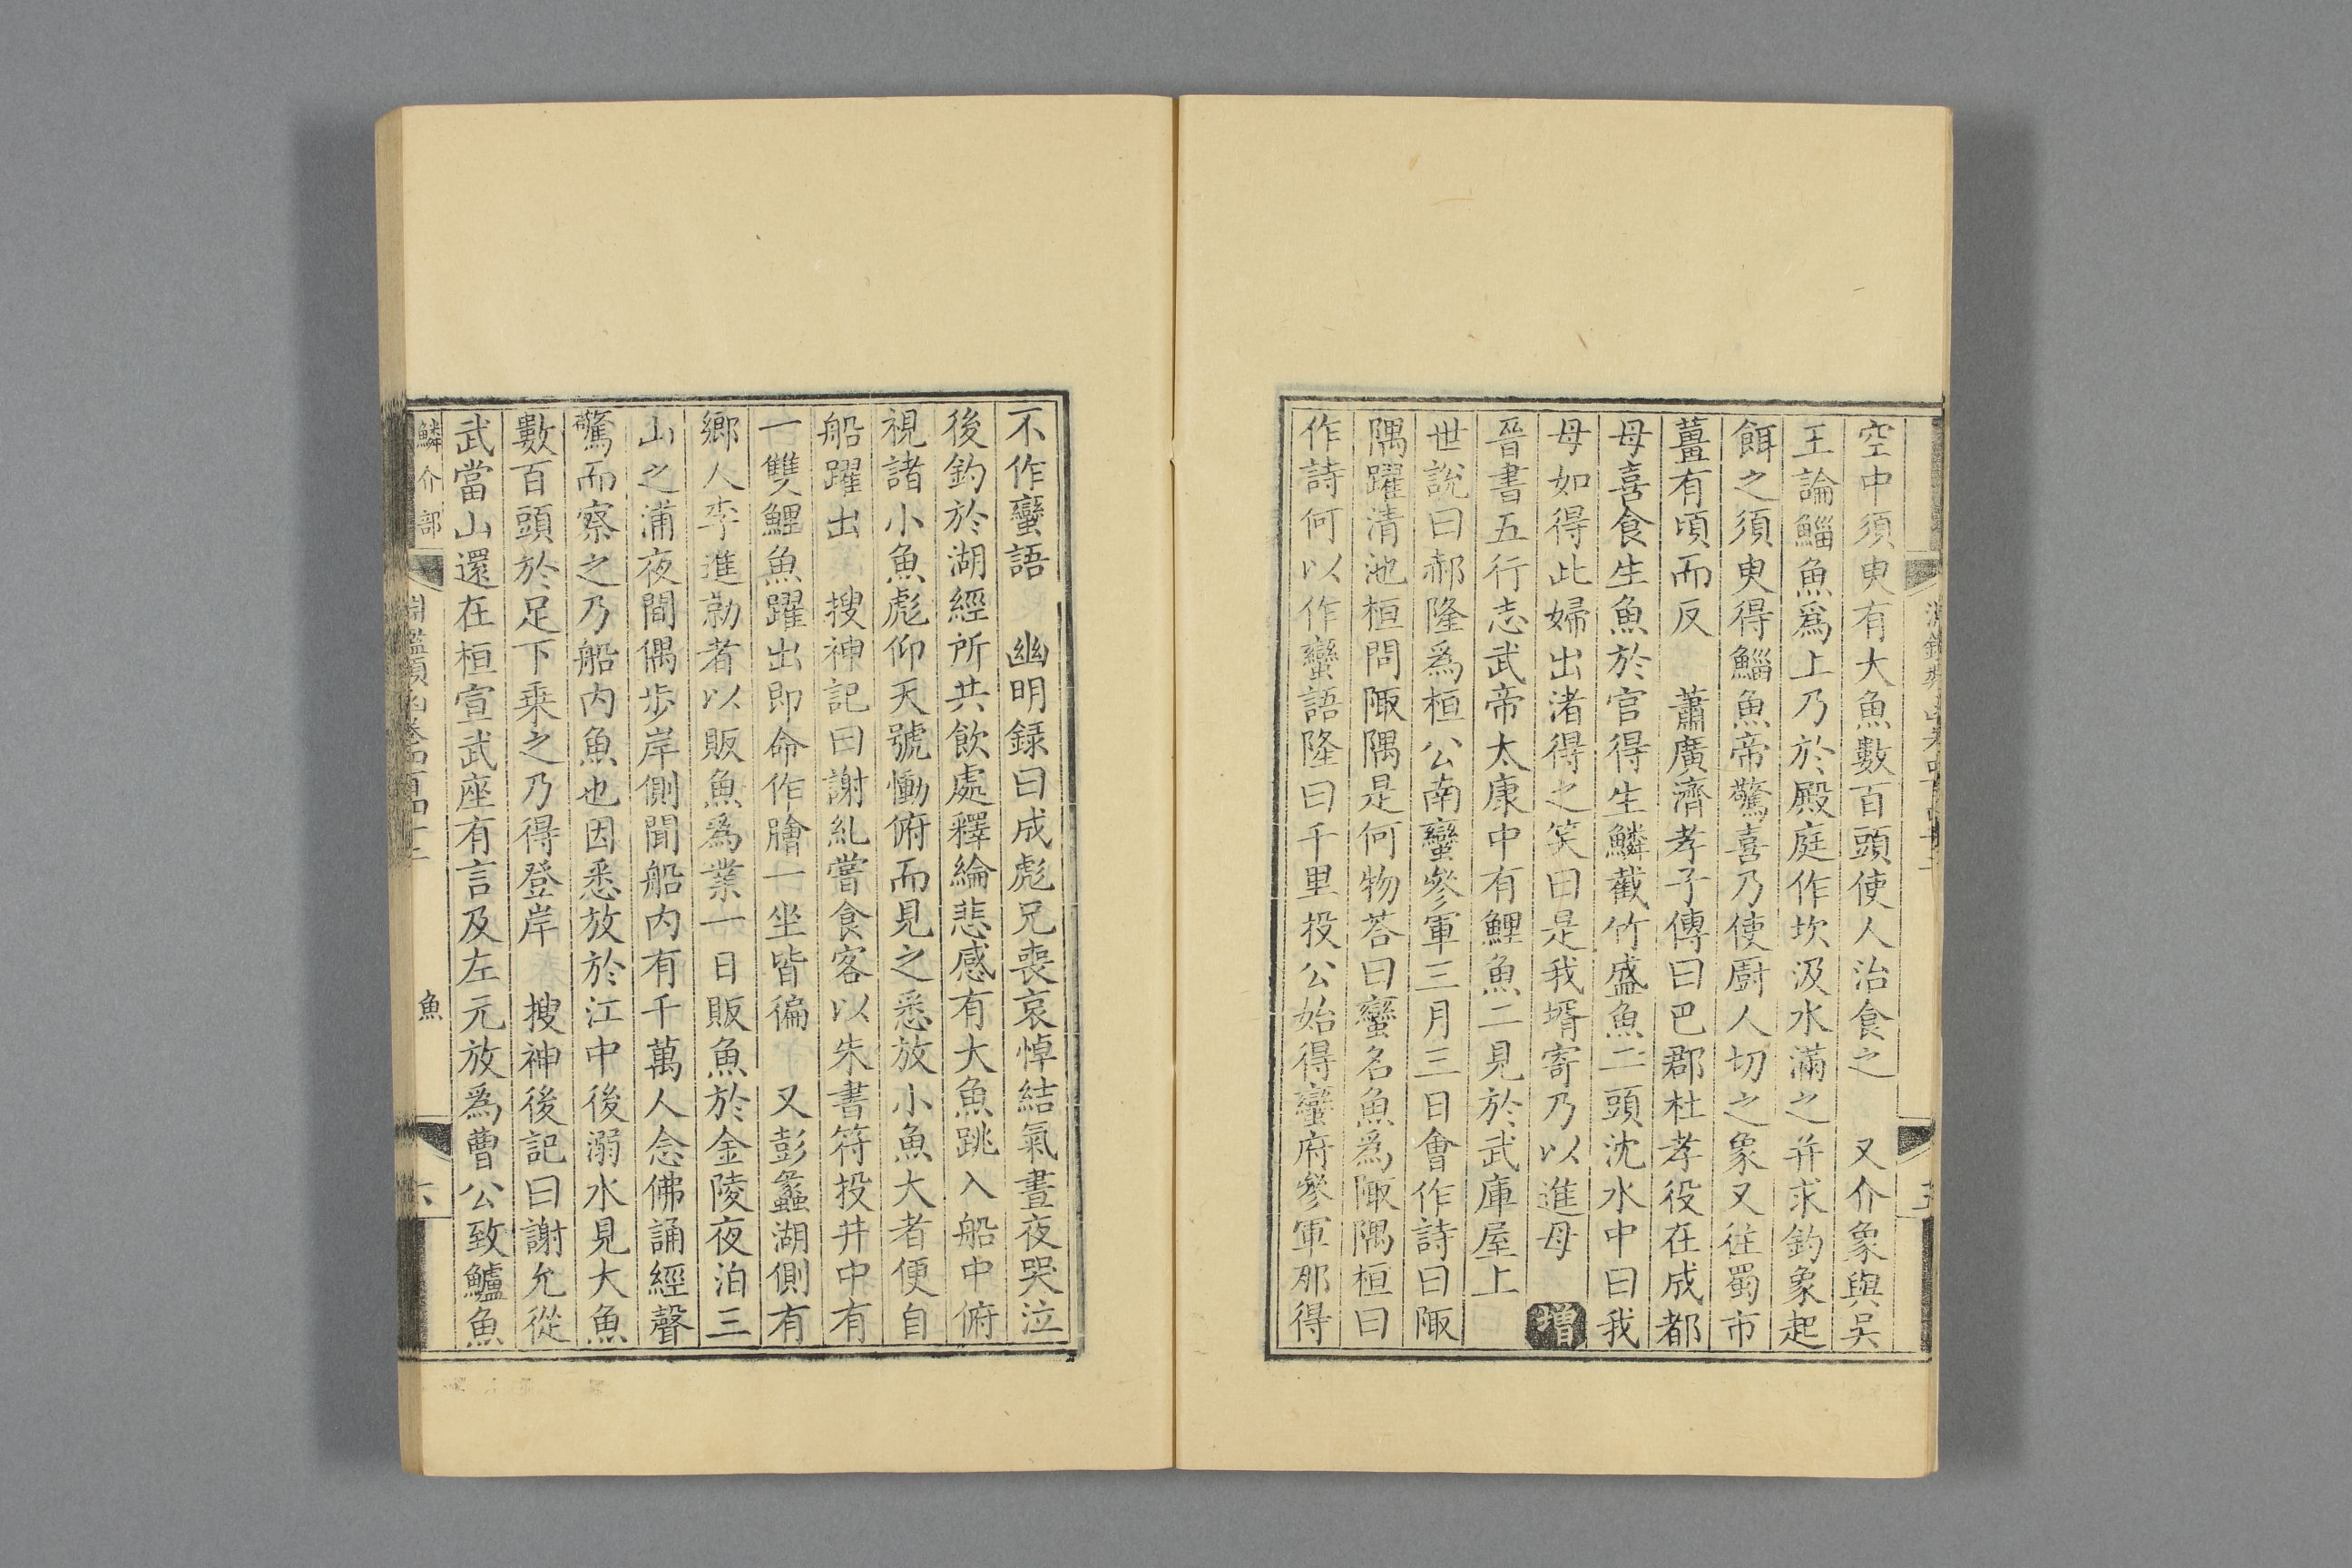 空中須臾有大魚數百頭使人治食之　又介象與吳
王論鯔魚爲上乃於殿庭作坎汲水滿之并求釣象起
餌之須臾得鯔魚帝驚喜乃使廚人切之象又往蜀市
薑有頃而反　蕭廣濟孝子傳曰巴郡杜孝役在成都
母喜食生魚於官得生鱗截竹盛魚二頭沈水中曰我
母如得此婦出渚得之笑曰是我壻寄乃以進母　增
晉書五行志武帝太康中有鯉魚二見於武庫屋上
世說曰郝隆爲桓公南蠻參軍三月三日會作詩曰陬
隅躍清池桓問陬隅是何物荅曰蠻名魚爲陬隅桓曰
作詩何以作蠻語隆曰千里投公始得蠻府參軍那得
不作蠻語　幽明録曰成彪兄喪哀悼結氣晝夜哭泣
後釣於湖經所共飲處釋綸悲感有大魚跳入船中俯
視諸小魚彪仰天號慟俯而見之悉放小魚大者便自
船躍出　搜神記曰謝糺嘗食客以朱書符投井中有
一雙鯉魚躍出即命作膾一坐皆徧　又彭蠡湖側有
鄉人李進勍者以販魚爲業一日販魚於金陵夜泊三
山之浦夜間偶步岸側聞船内有千萬人念佛誦經聲
驚而察之乃船内魚也因悉放於江中後溺水見大魚
數百頭於足下乗之乃得登岸　搜神後記曰謝允從
武當山還在桓宣武座有言及左元放爲曹公致鱸魚
鱗介部
淵鑑類函卷四百四十二
魚
六